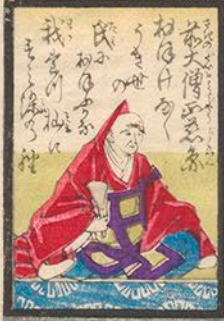 前大僧正慈圓
おほけなく
うき世の
民に
おほふ哉
我立杣に
すみ染の袖